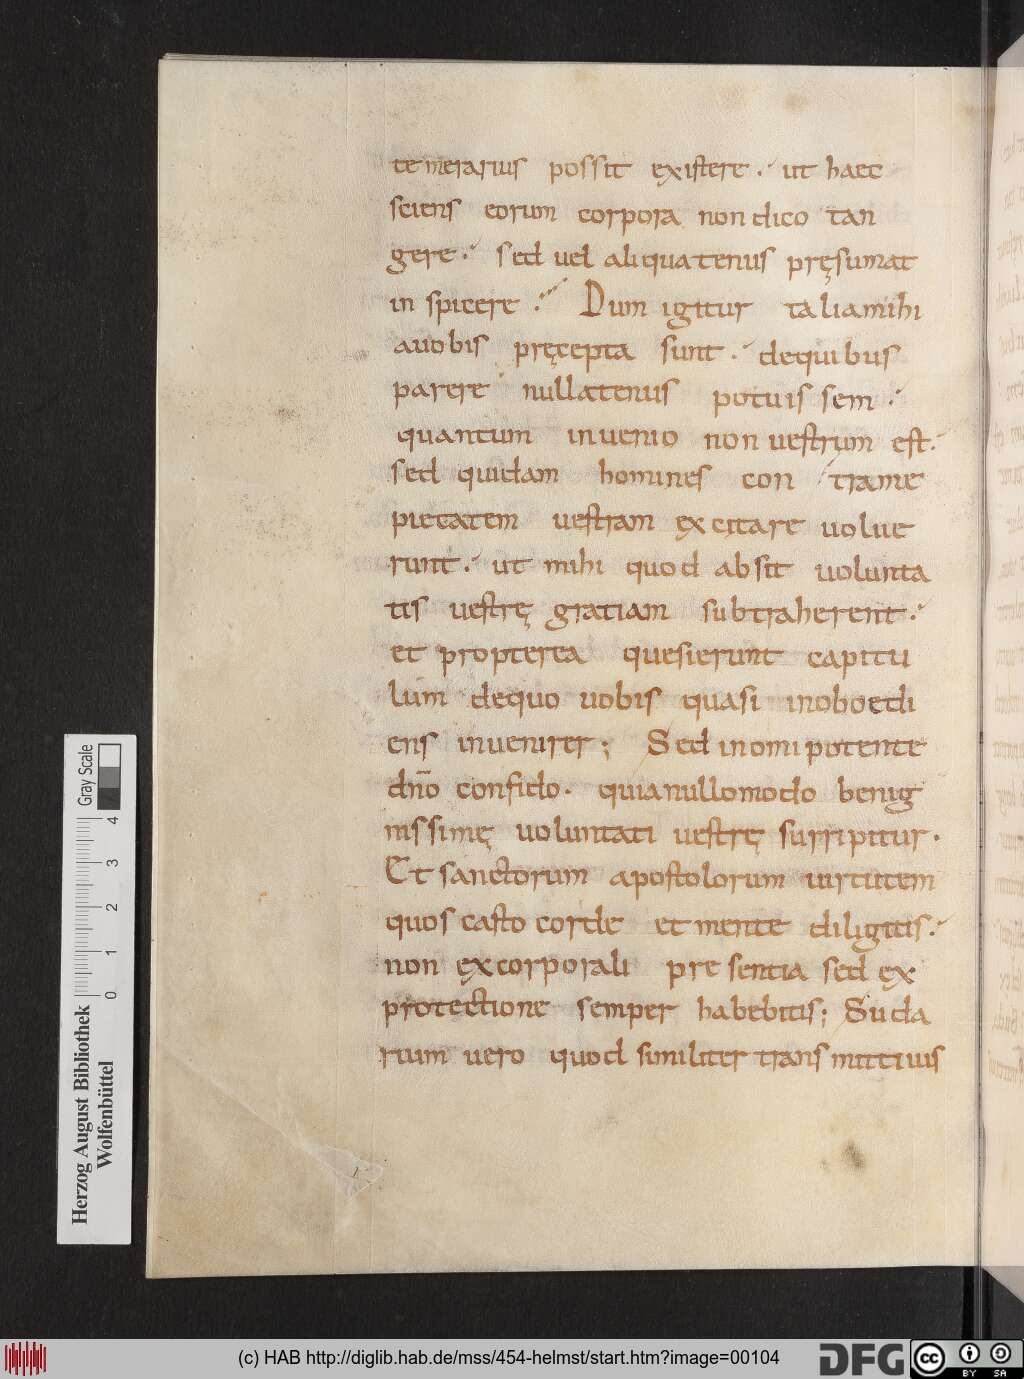 temerarius possit existere. ut haec
sciens eorum corpora non dico tan
gere. sed vel aliquatenus pręsumat
inspicere. Dum igitur talia mihi
a uobis pręcepta sunt. de quibus
parere nullatenus potuissem.
quantum inuenio non uestrum est.
sed quidam homines contra me
pietatem uestram excitare uolue
runt. ut mihi quod absit uolunta
tis uestrę gratiam subtraherent.
et propterea quesierunt capitu
lum de quo uobis quasi inoboedi
ens inuenirer; Sed in omipotente
dn̄o confido. quia nullomodo benig
nissimę uoluntati uestrę surripitur.
Et sanctorum apostolorum uirtutem
quos casto corde et mente diligitis.
non ex corporali presentia sed ex
protectione semper habebitis; Suda
rium uero quod similiter transmitti uis
Herzog August Bibliothek
Wolfenbüttel
Gray Scale
0 1 2 3 4
(c) HAB http://diglib.hab.de/mss/454-helmst/start.htm?image=00104
DFG
cc BY SA